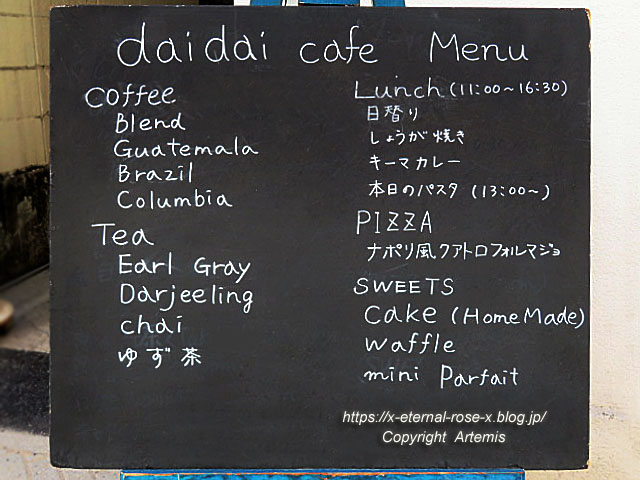 daidai cafe Menu
Coffee
Blend
Guatemala
Brazil
Columbia
Tea
Earl Gray
Darjeeling
chai
ゆず茶
Lunch (11:00～16:30)
日替り
しょうが焼き
キーマカレー
本日のパスタ (13:00～)
PIZZA
ナポリ風クアトロフォルマジョ
SWEETS
Cake (HomeMade)
Waffle
mini Parfait
https://x-eternal-rose-x.blog.jp/
Copyright Artemis